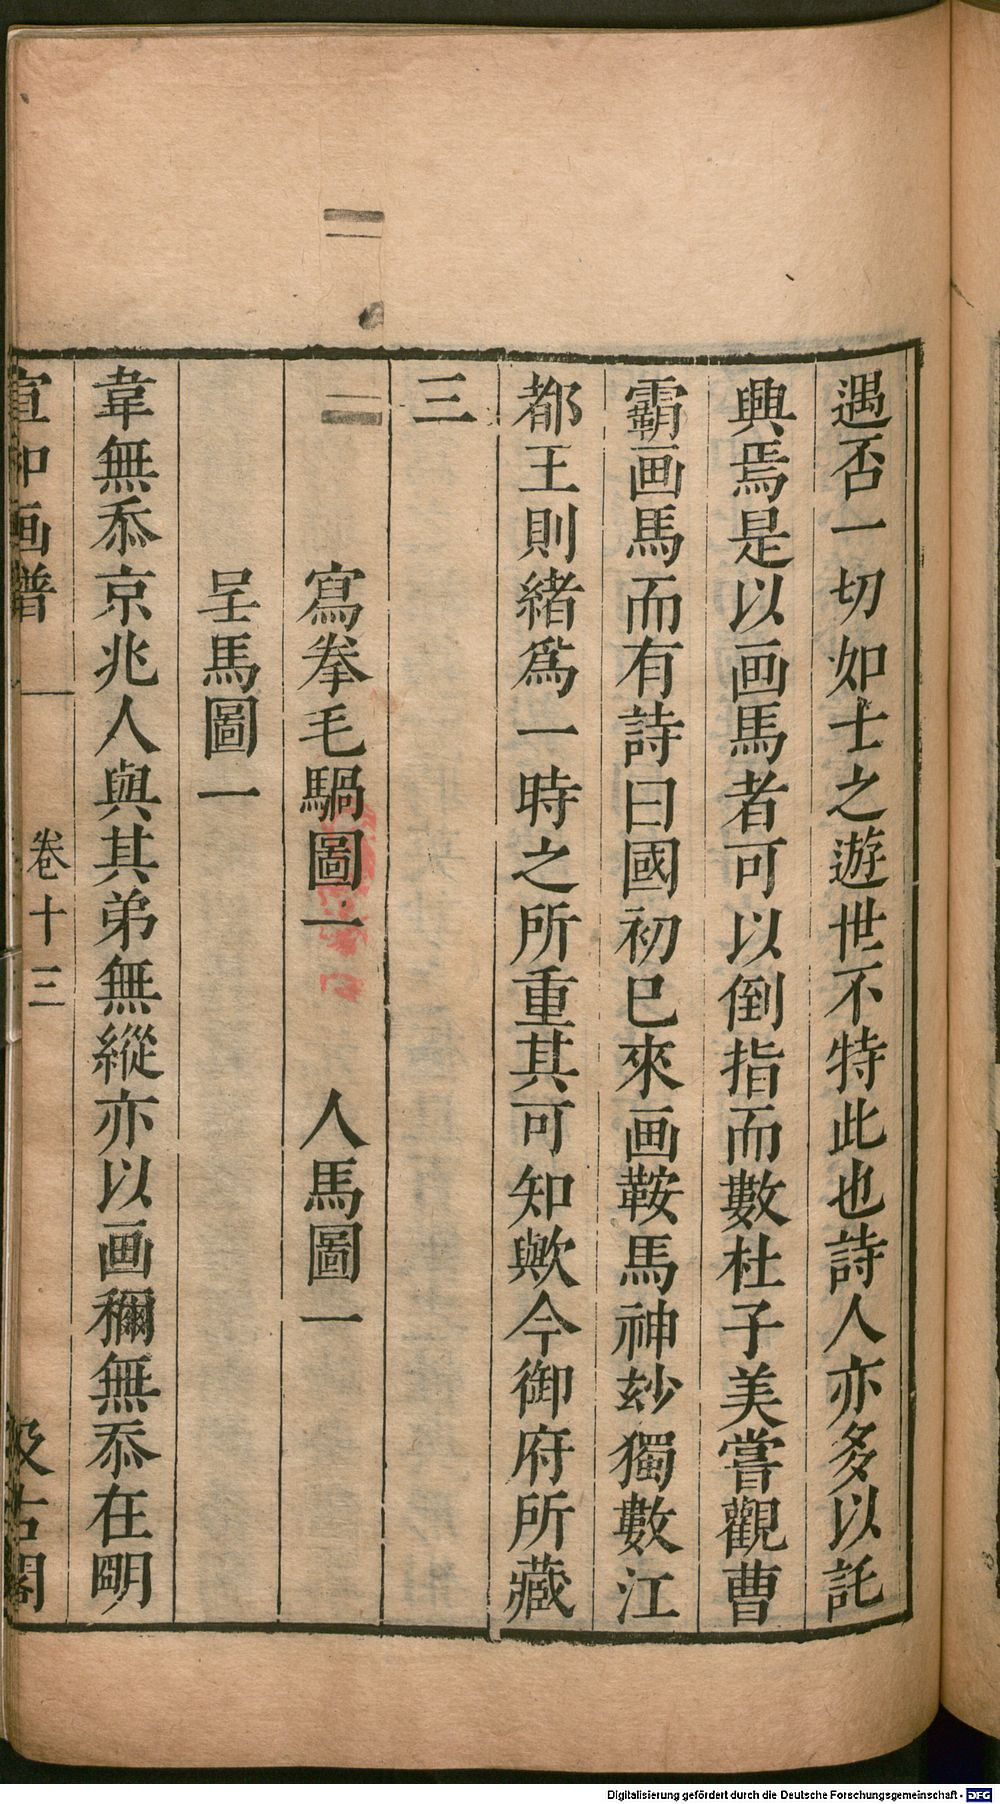 遇否一切如士之遊世不特此也詩人亦多以託
興焉是以画馬者可以倒指而數杜子美嘗觀曹
霸画馬而有詩曰國初已來画鞍馬神玅獨數江
都王則緒爲一時之所重其可知歟今御府所藏
三
寫拳毛騧圖一 人馬圖一
呈馬圖一
韋無忝京兆人與其弟無縱亦以画稱無忝在明
宣和画譜 卷十三 汲古閣
Digitalisierung gefördert durch die Deutsche Forschungsgemeinschaft - DFG